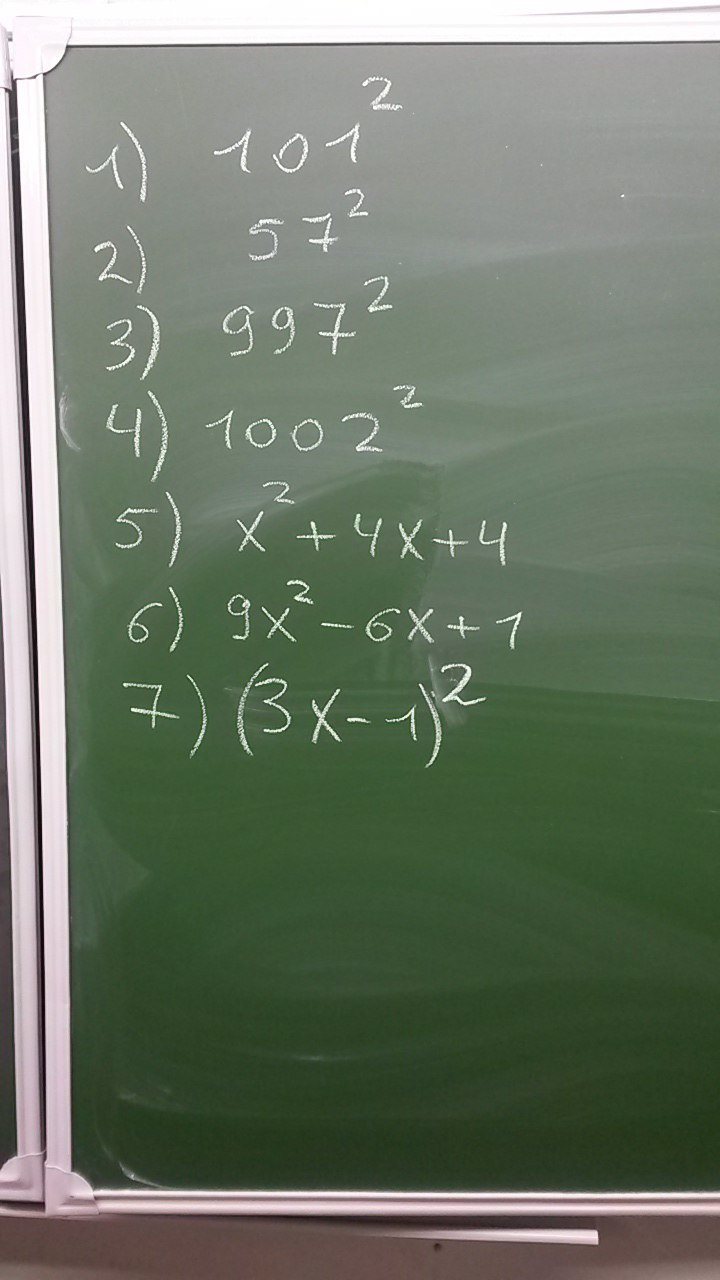 1) 101²
2) 57²
3) 997²
4) 1002²
5) x²+4x+4
6) 9x²-6x+1
7) (3x-1)²